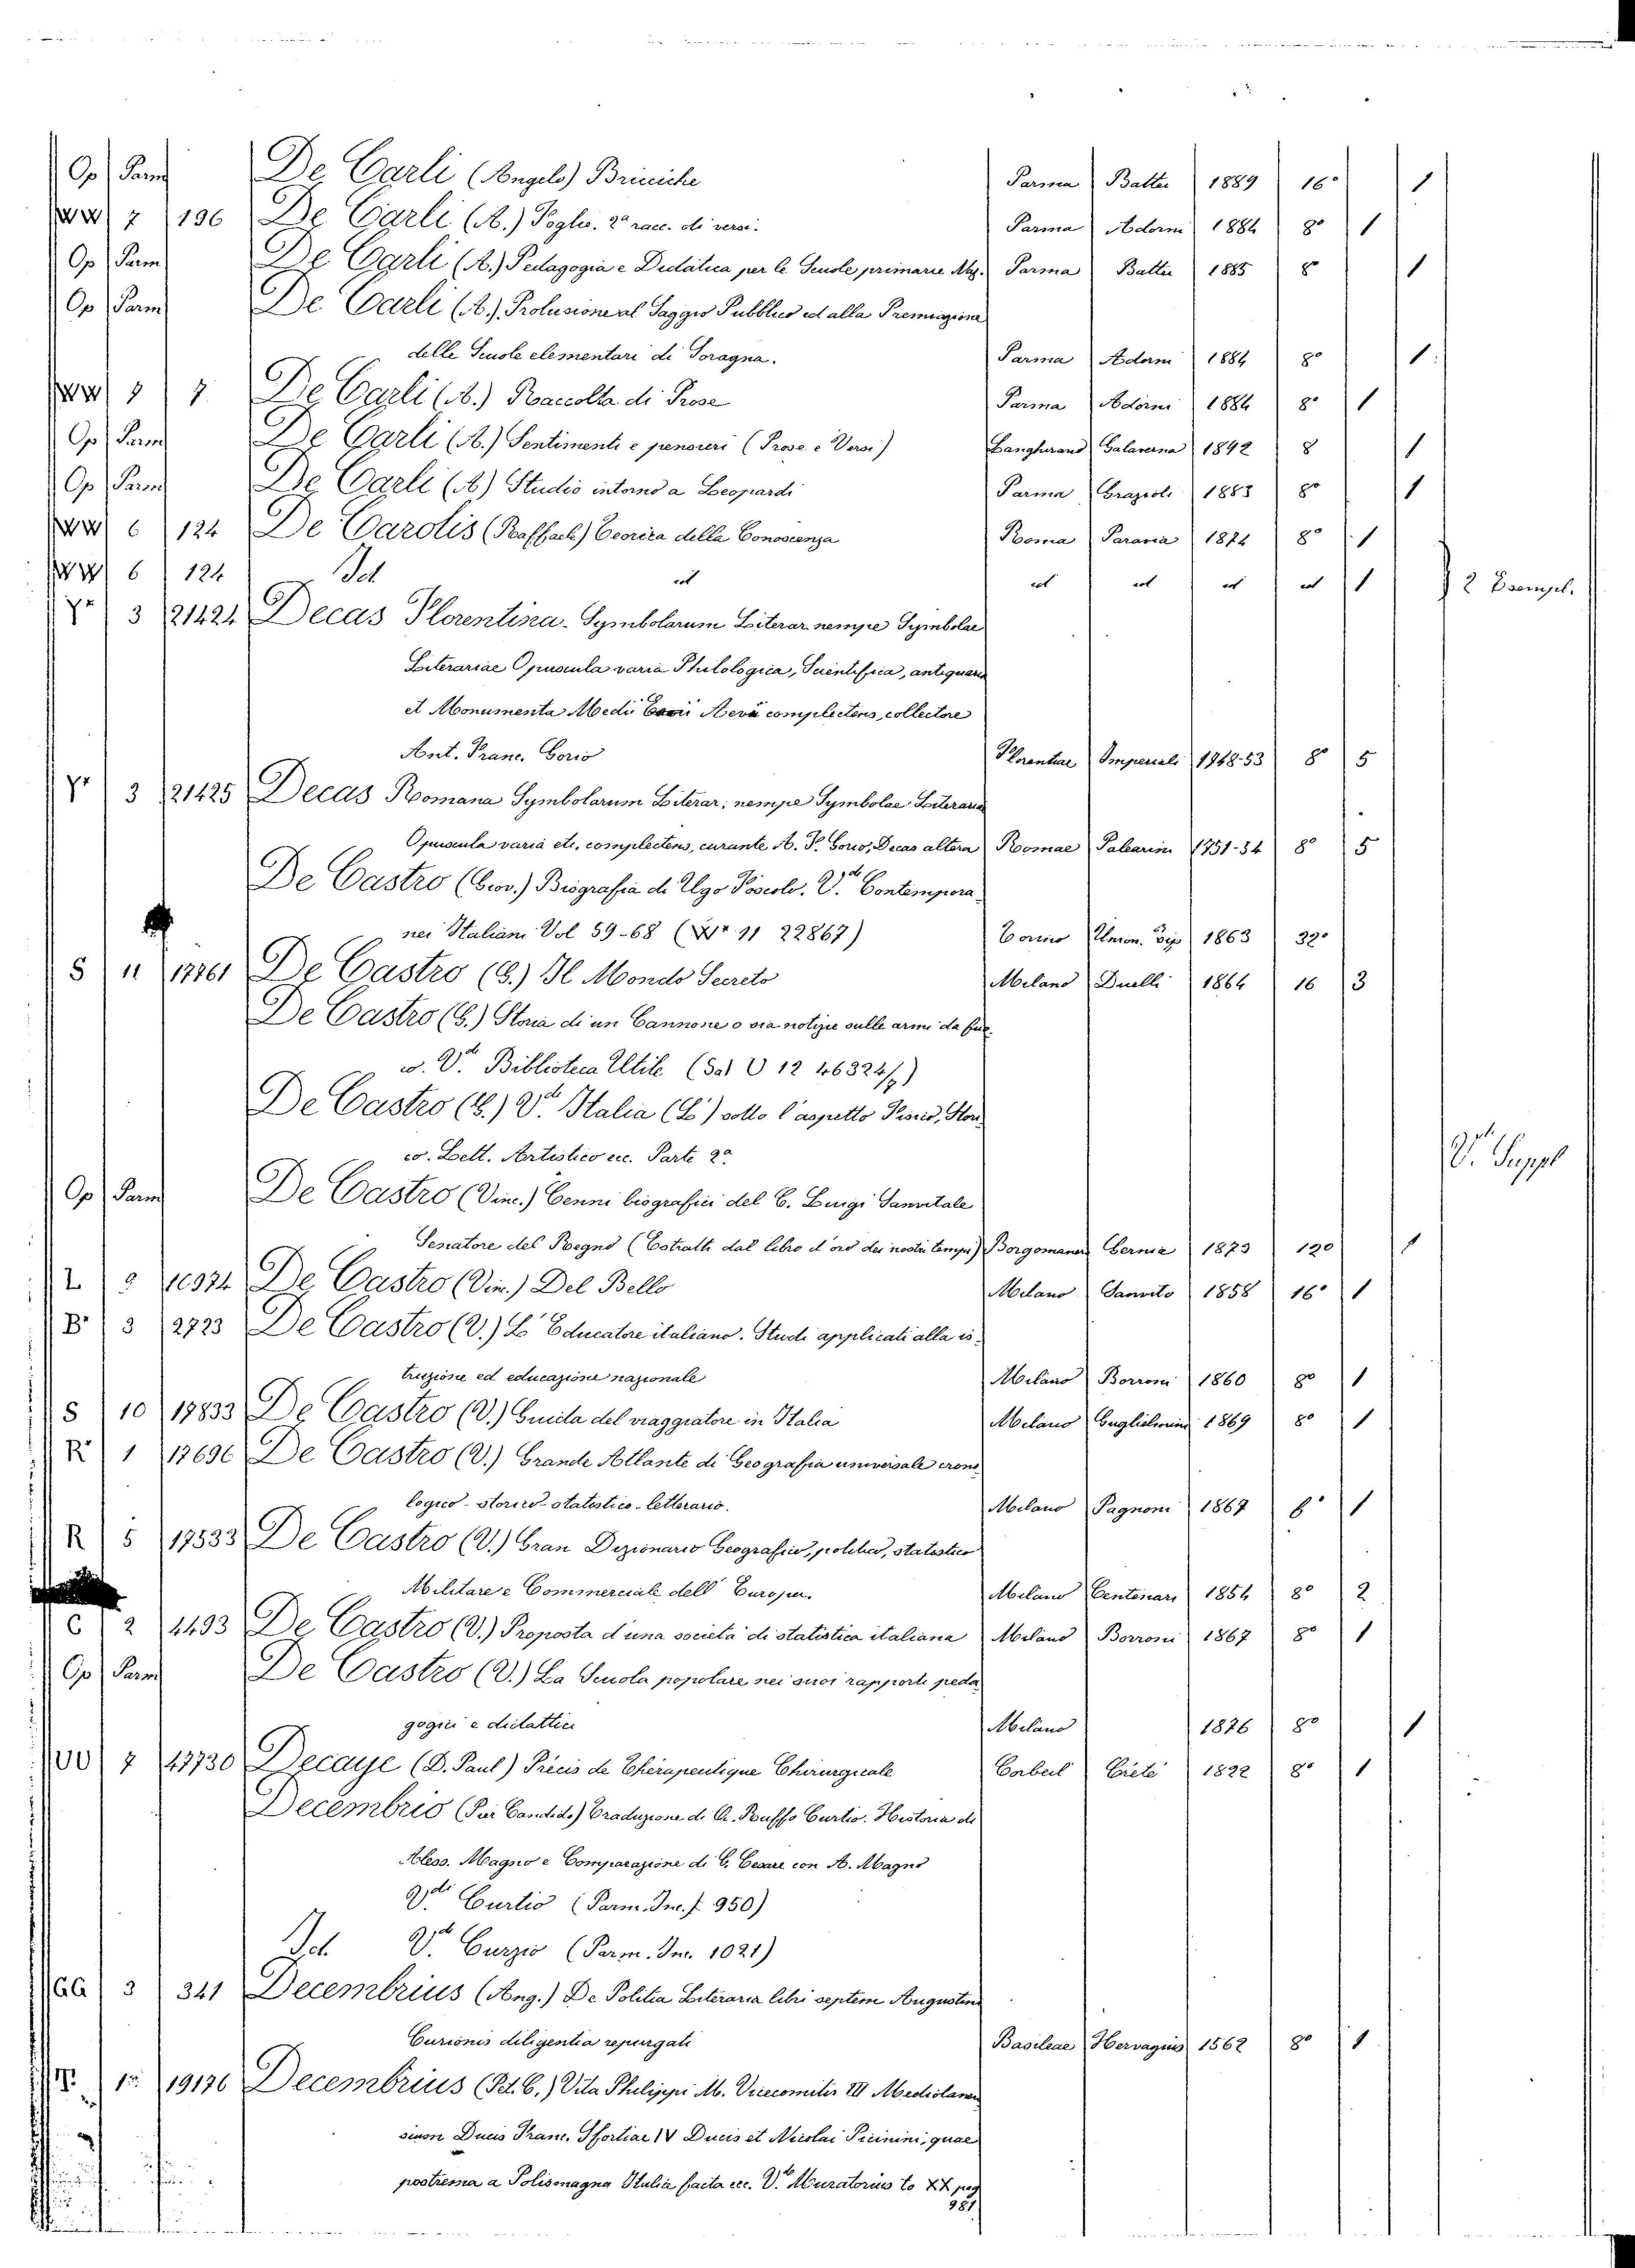 Op Parm De Carli (Angelo) Briniche Parma Battei 1889 16° 1
WW 7 196 De Carli (A.) Foglie. 2ª racc. di versi. Parma Adorni 1884 8° 1
Op Parm De Carli (A.) Pedagogia e Didatica per le Scuole primarie Mag. Parma Battei 1885 8° 1
Op Parm De Carli (A.) Prolusione al Saggio Pubblico ed alla Premiazione
delle Scuole elementari di Soragna. Parma Adorni 1884 8° 1
WW 7 De Carli (A.) Raccolta di Prose Parma Adorni 1884 8° 1
Op Parm De Carli (A.) Sentimenti e pensieri (Prose e Versi) Langhirano Galaverna 1892 8 1
Op Parm De Carli (A) Studio intorno a Leopardi Parma Grazioli 1883 8° 1
WW 6 124 De Carolis (Raffaele) Teorica della Conoscenza Roma Paravia 1874 8° 1
WW 6 124 Id id id id id id 1 2 Esempl.
3 21424 Decas Florentina. Symbolarum Literar nempe Symbolae
Literariae Opuscula varia Philologica, Scientifica, antiquaria
et Monumenta Medii Aevi complectens, collectore
Ant. Franc. Gorio Florentiae Imperiali 1748-53 8° 5
3 21425 Decas Romana Symbolarum Literar; nempe Symbolae Literariae
Opuscula varia etc. complectens, curante A. F. Gorio, Decas altera Romae Palearini 1751-54 8° 5
De Castro (Giov.) Biografia di Ugo Foscolo. Vdi Contempora-
nei Italiani Vol 59-68 (11 22867) Torino Union. Tip 1863 32°
S 11 17761 De Castro (G.) Il Mondo Secreto Milano Daelli 1864 16 3
De Castro (G.) Storia di un Cannone o sia notizie sulle armi da fuo-
co. Vdi Biblioteca Utile (Sal U 12 46324/7)
De Castro (G.) Vdi Italia (L') sotto l'aspetto Fisico, Stori-
co. Lett. Artistico ecc. Parte 2ª Vdi Suppl
Op Parm De Castro (Vinc.) Cenni biografici del C. Luigi Sanvitale
Senatore del Regno (Estratti dal libro d'oro dei nostri tempi) Borgomaner 1873 12° 1
L 9 10974 De Castro (Vin.) Del Bello Milano Sanvito 1858 16° 1
B' 3 2723 De Castro (V.) L'Educatore italiano. Studi applicati alla is-
truzione ed educazione nazionale Milano Borroni 1860 8° 1
S 10 17833 De Castro (V.) Guida del viaggiatore in Italia Milano Guglielmini 1869 8° 1
R' 1 17696 De Castro (V.) Grande Atlante di Geografia universale crono-
logico-storico-statistico-letterario. Milano Pagnoni 1867 1
R 5 17533 De Castro (V.) Gran Dizionario Geografico, politico, statistico
Militare e Commerciale dell'Europa. Milano Centenari 1854 8° 2
C 2 4493 De Castro (V.) Proposta d'una società di statistica italiana Milano Borroni 1867 8° 1
Op Parm De Castro (V.) La Scuola popolare nei suoi rapporti peda-
gogici e didattici Milano 1876 8° 1
UU 7 47730 Decaye (D. Paul) Précis de Thérapeutique Chirurgicale Corbeil Crété 1822 8° 1
Decembrio (Pier Candido) Traduzione di Q. Ruffo Curtio. Historia di
Aless. Magno e Comparazione di G. Cesare con A. Magno
Vdi Curtio (Parm. Inc. f. 950)
Id. Vdi Curzio (Parm. Inc. 1021)
GG 3 341 Decembrius (Ang.) De Politia Literaria libri septem Augustini
Curionis diligentia repurgati Basileae Hervagius 1562 8° 1
19176 Decembrius (Pet. C.) Vita Philippi M. Vicecomitis III Mediolanen-
sium Ducis Franc. Sfortiae IV Ducis et Nicolai Picinini, quae
postrema a Polismagna Italia facta ecc. Vdi Muratorius to XX pag
981